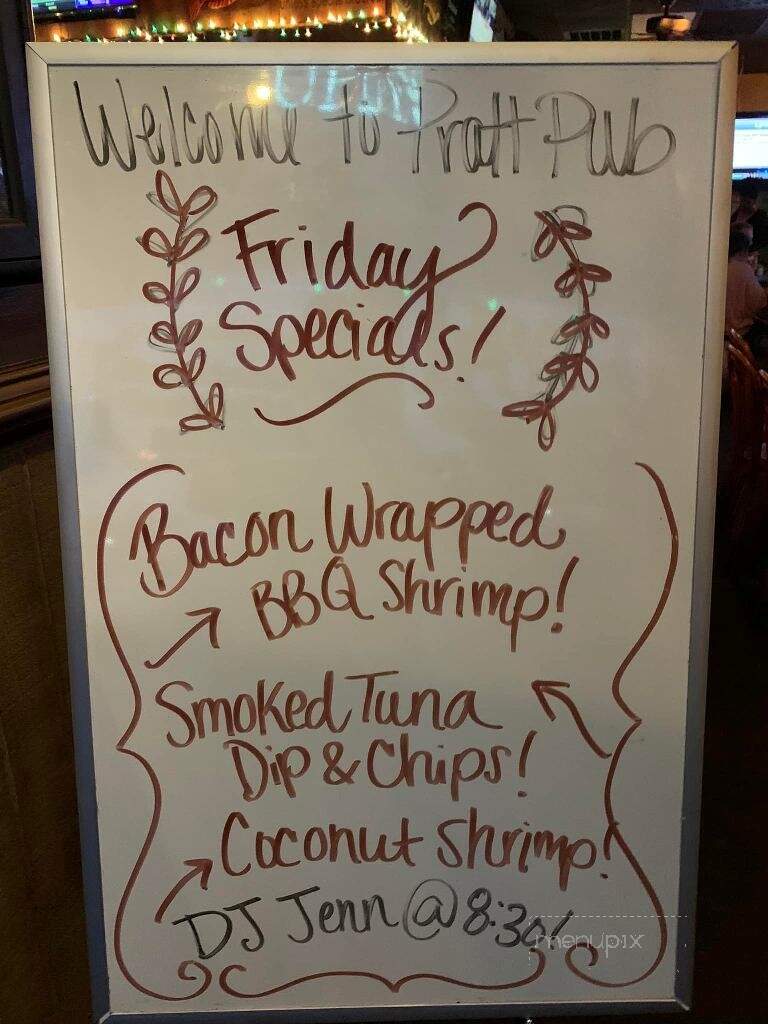 Welcome to Pratt Pub
Friday
Specials!
Bacon Wrapped
BBQ Shrimp!
Smoked Tuna
Dip & Chips!
Coconut Shrimp!
DJ Jenn @ 8:30!
menupix